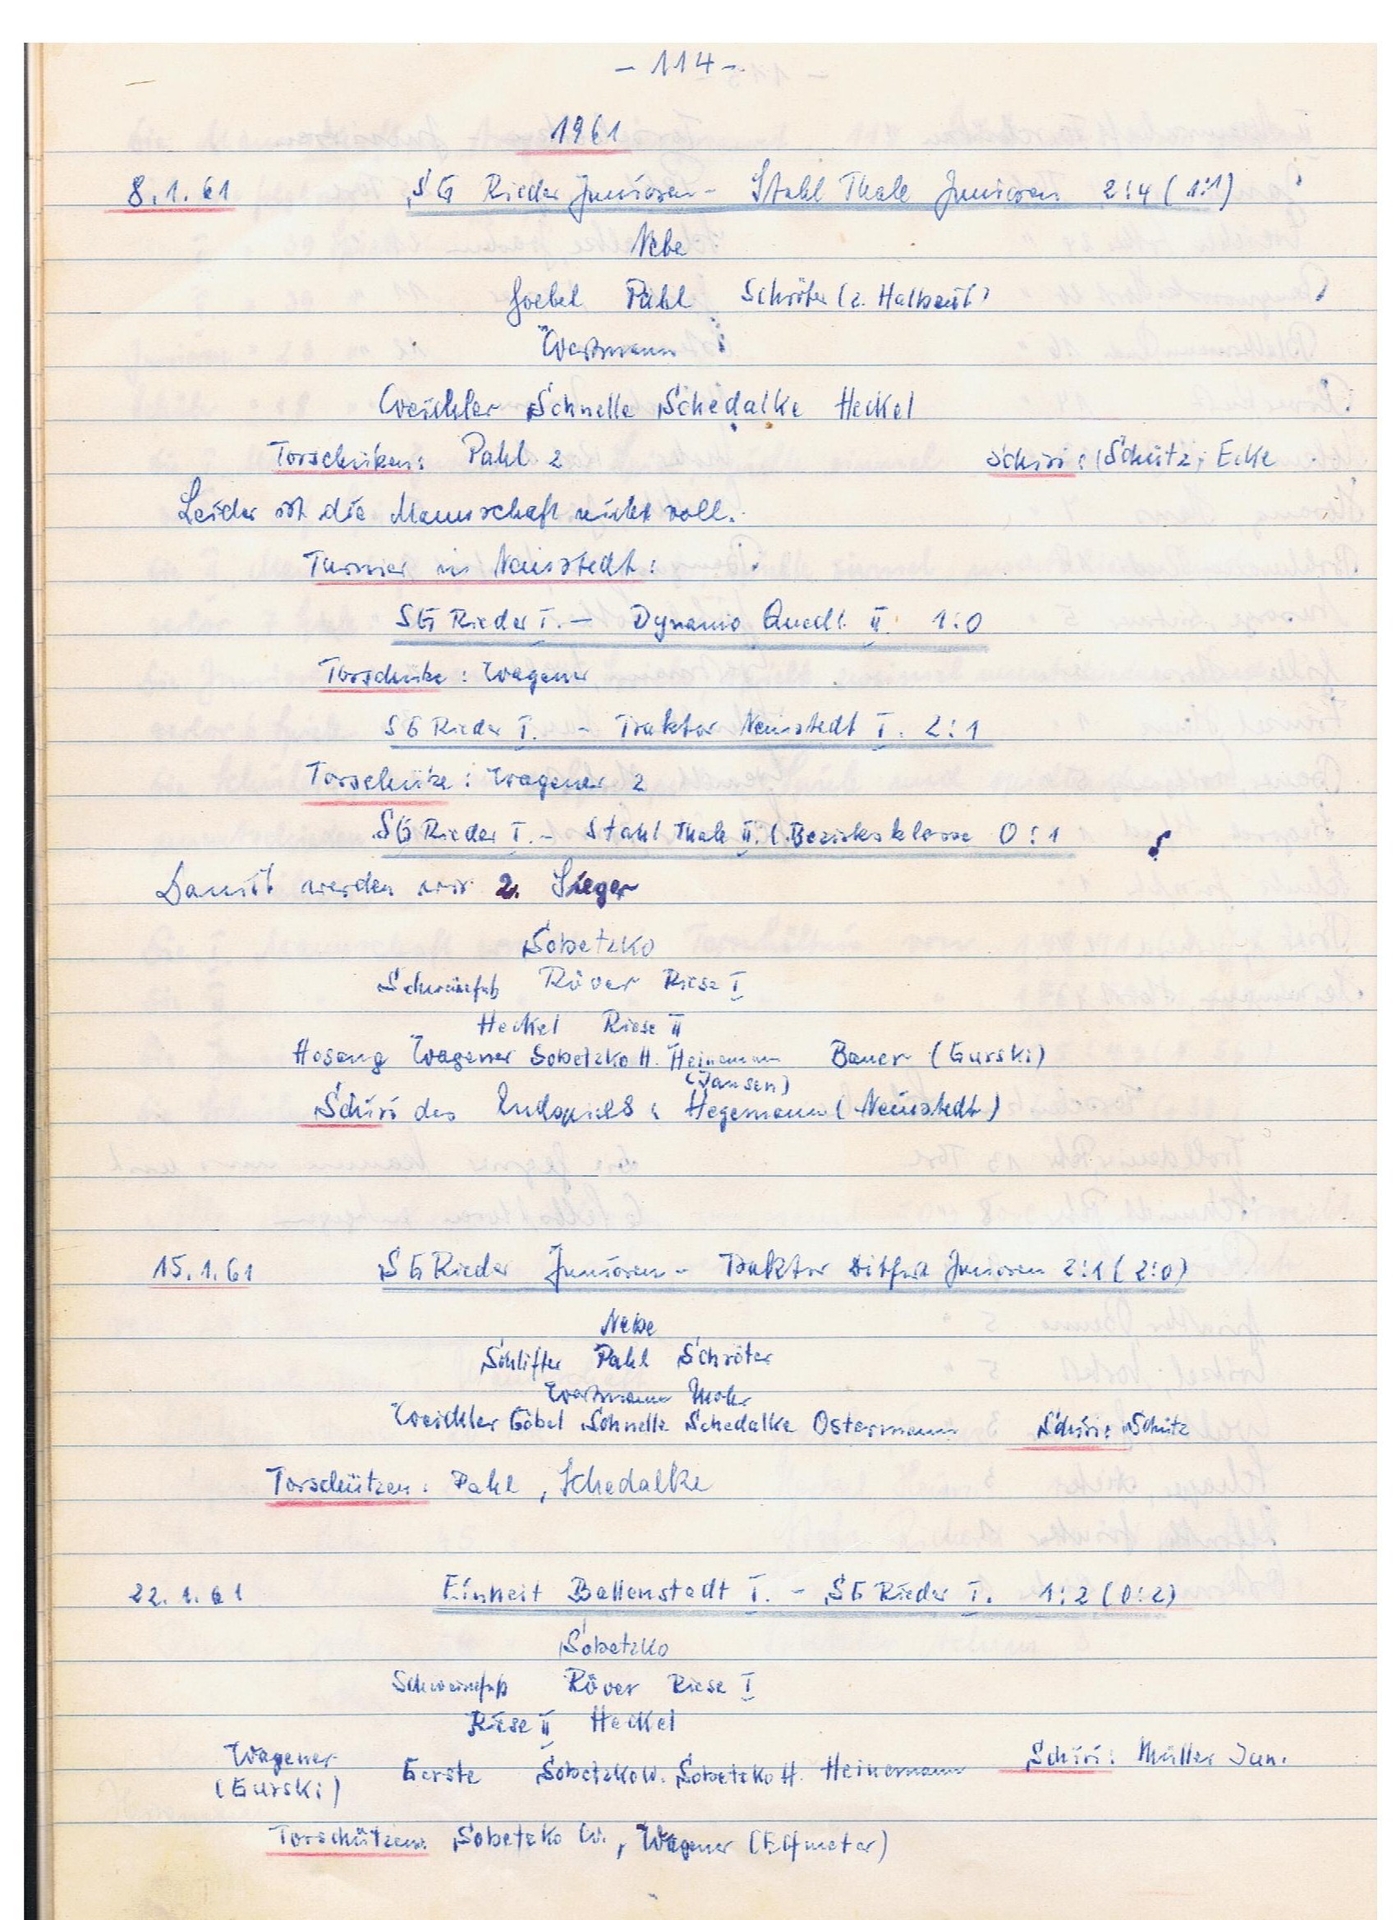 - 114 -
1961
8.1.61 SG Rieder Junioren - Stahl Thale Junioren 2:4 (1:1)
Nebe
Goebel Pahl Schröter (2. Halbzeit)
Wortmann
Weichler Schnelle Schedalke Heckel
Torschützen: Pahl 2 Schiri: Schütz, Ecke
Leider ist die Mannschaft nicht voll.
Turnier in Neinstedt:
SG Rieder I. - Dynamo Quedl. II. 1:0
Torschütze: Wagener
SG Rieder I. - Traktor Neinstedt I. 2:1
Torschütze: Wagener 2
SG Rieder I. - Stahl Thale II. (Bezirksklasse 0:1
Damit werden wir 2. Sieger
Sobetzko
Schweinefuß Röver Riese I
Heckel Riese II
Hosang Wagener Sobetzko H. Heinemann Bauer (Gurski)
(Jansen)
Schiri des Endspiels: Hegemann (Neinstedt)
15.1.61 SG Rieder Junioren - Traktor Ditfurt Junioren 2:1 (2:0)
Nebe
Schlifter Pahl Schröter
Wortmann Mohr
Weichler Göbel Schnelle Schedalke Ostermann Schiri: Schütz
Torschützen: Pahl, Schedalke
22.1.61 Einheit Ballenstedt I. - SG Rieder I. 1:2 (0:2)
Sobetzko
Schweinefuß Röver Riese I
Riese II Heckel
Wagener (Gurski) Gerste Sobetzko W. Sobetzko H. Heinemann Schiri: Müller Jun.
Torschützen: Sobetzko W., Wagener (Elfmeter)